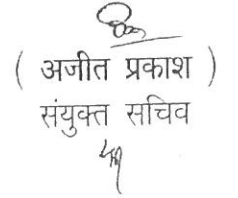 ( अजीत प्रकाश )
संयुक्त सचिव